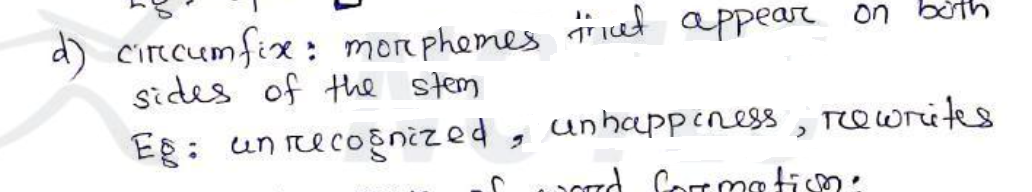 d) circumfix: morphemes that appear on both
sides of the stem
Eg: unrecognized, unhappiness, rewrites
of word formation: